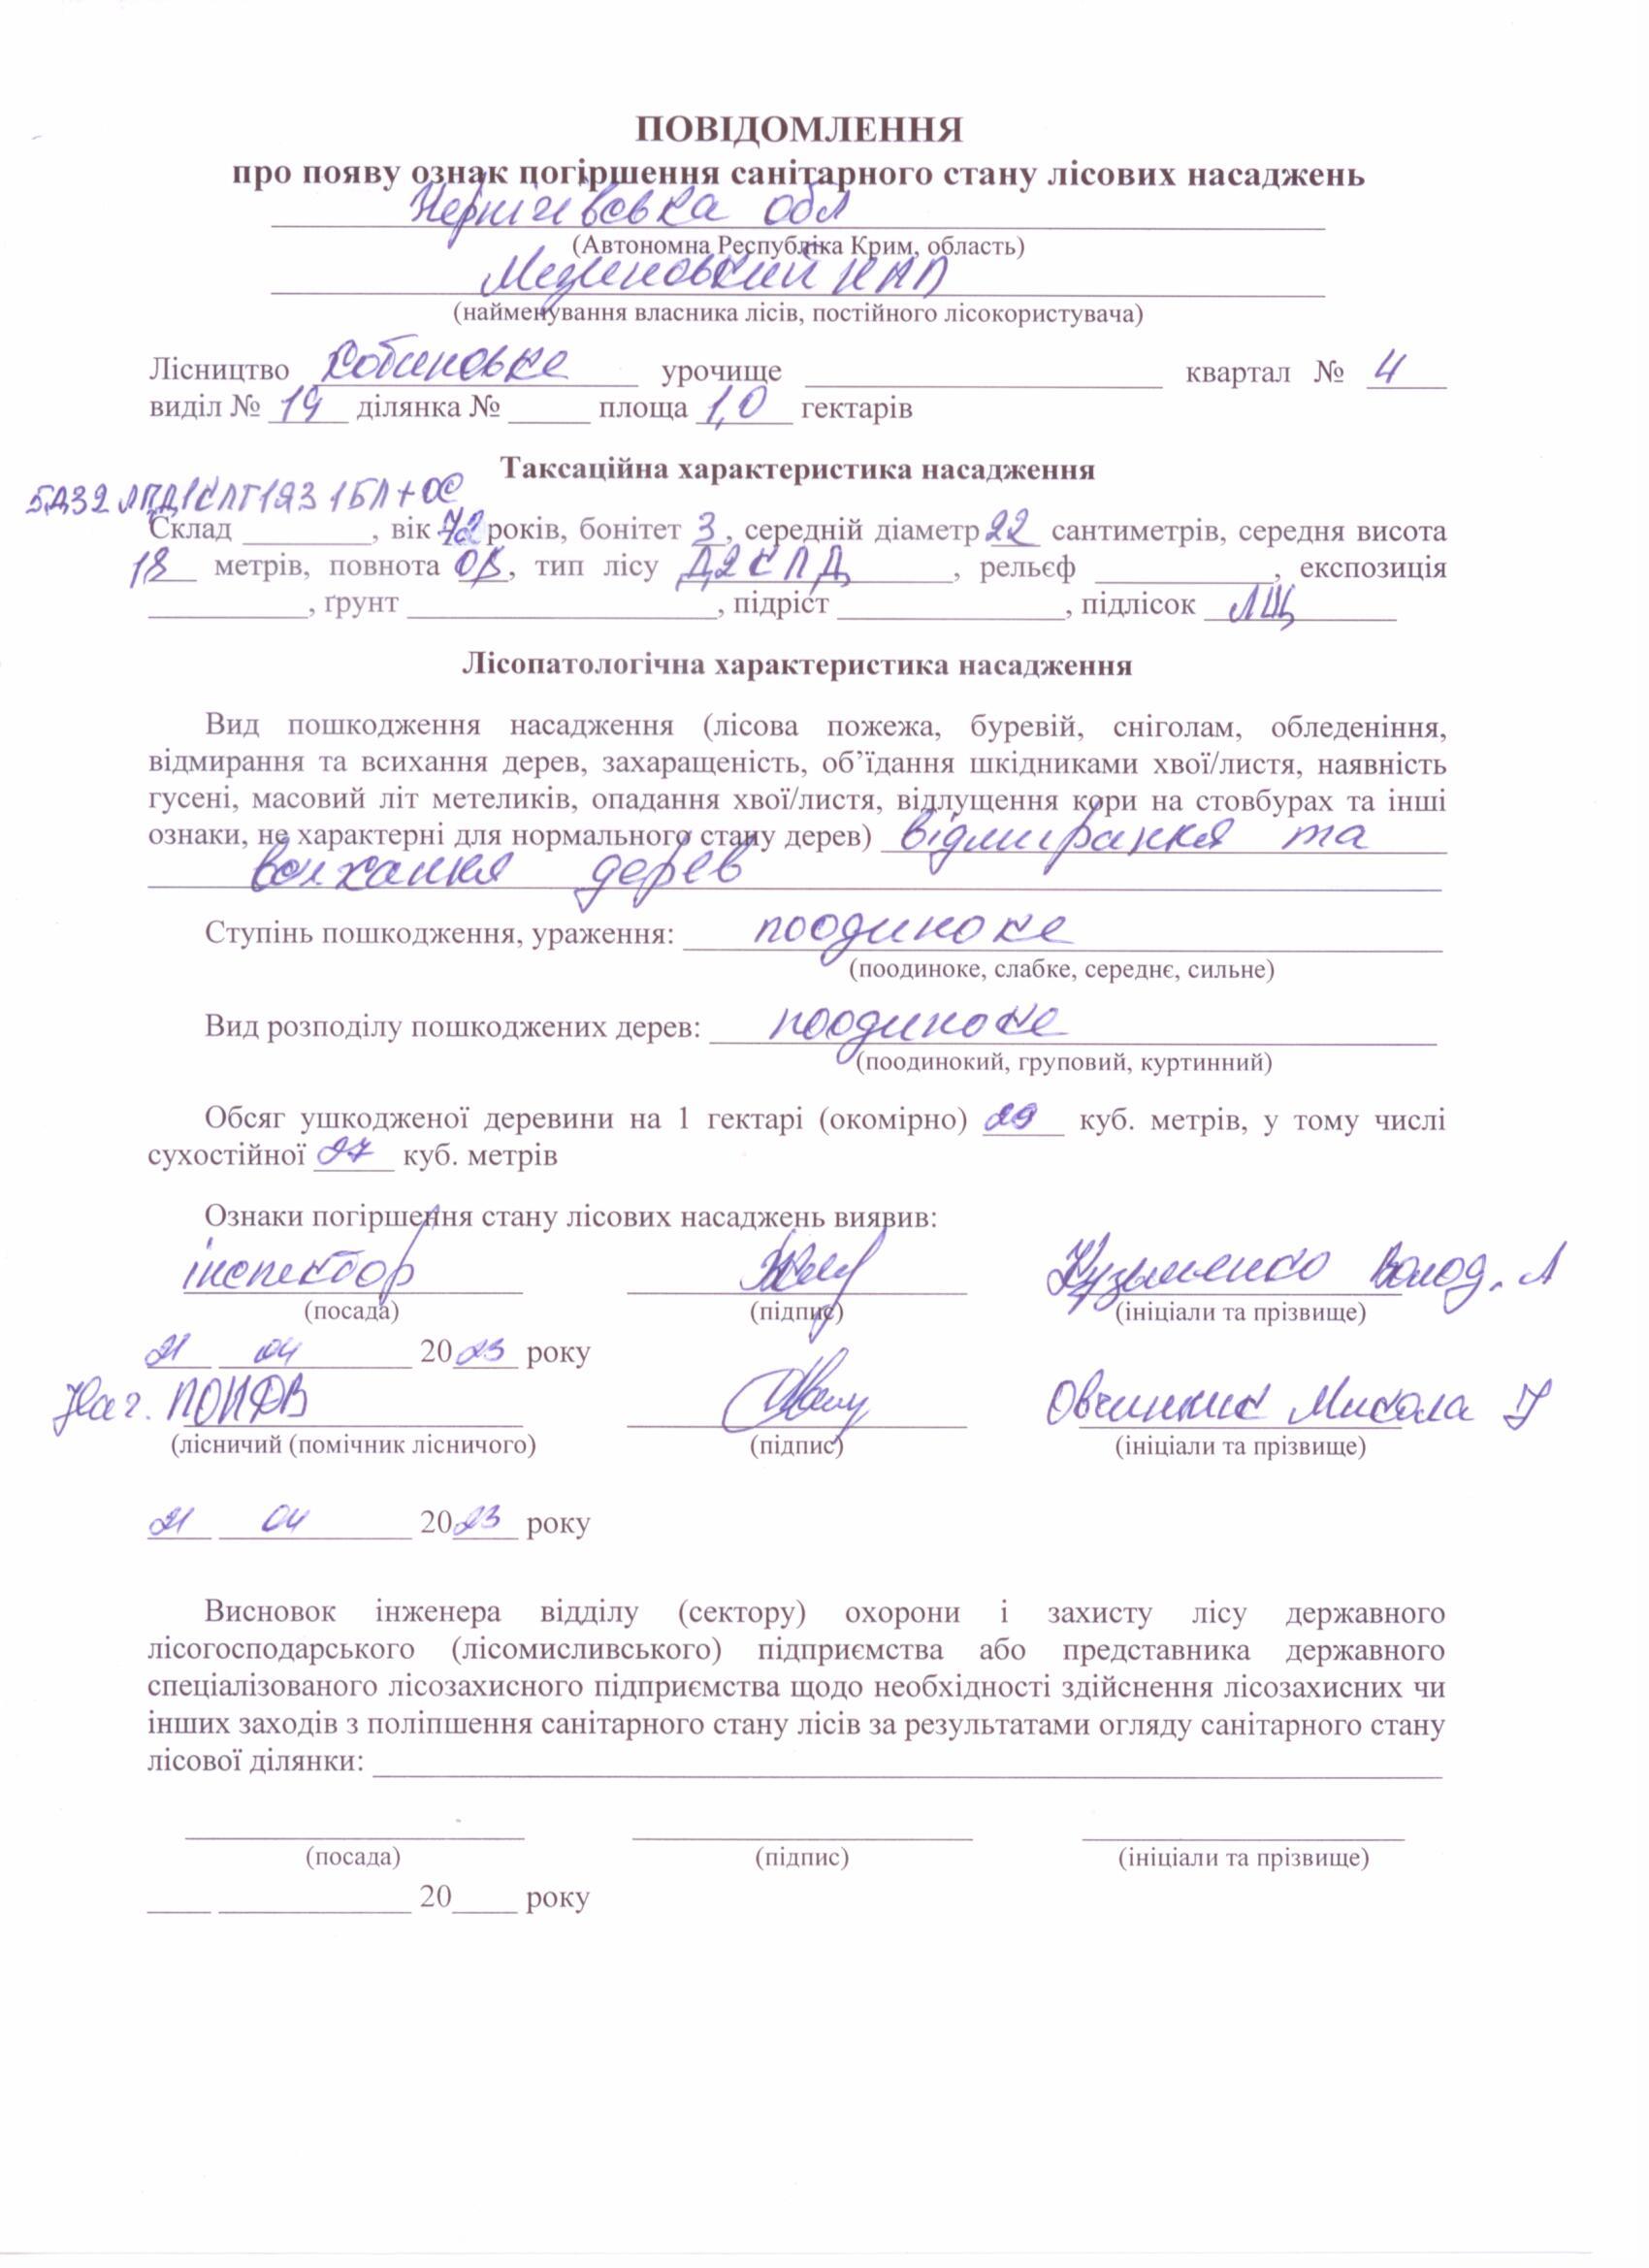 ПОВІДОМЛЕННЯ
про появу ознак погіршення санітарного стану лісових насаджень
Чернігівська обл
(Автономна Республіка Крим, область)
Мезиновський НПП
(найменування власника лісів, постійного лісокористувача)
Лісництво ________ урочище ________ квартал № 4
виділ № 19 ділянка № ____ площа 1,0 гектарів
Таксаційна характеристика насадження
Склад ________, вік 72 років, бонітет 3, середній діаметр 22 сантиметрів, середня висота
18 метрів, повнота ____, тип лісу Д2СЛД, рельєф ________, експозиція
________, ґрунт ________, підріст ________, підлісок ЛЩ
Лісопатологічна характеристика насадження
Вид пошкодження насадження (лісова пожежа, буревій, сніголам, обледеніння,
відмирання та всихання дерев, захаращеність, об’їдання шкідниками хвої/листя, наявність
гусені, масовий літ метеликів, опадання хвої/листя, відлущення кори на стовбурах та інші
ознаки, не характерні для нормального стану дерев) відмирання та
всихання дерев
Ступінь пошкодження, ураження: поодиноке
(поодиноке, слабке, середнє, сильне)
Вид розподілу пошкоджених дерев: поодиноке
(поодинокий, груповий, куртинний)
Обсяг ушкодженої деревини на 1 гектарі (окомірно) 29 куб. метрів, у тому числі
сухостійної 27 куб. метрів
Ознаки погіршення стану лісових насаджень виявив:
інспектор Кузьменко Волод. А
(посада) (підпис) (ініціали та прізвище)
21 04 2023 року
Нач. ПОНДВ Овчинник Микола
(лісничий (помічник лісничого) (підпис) (ініціали та прізвище)
21 04 2023 року
Висновок інженера відділу (сектору) охорони і захисту лісу державного
лісогосподарського (лісомисливського) підприємства або представника державного
спеціалізованого лісозахисного підприємства щодо необхідності здійснення лісозахисних чи
інших заходів з поліпшення санітарного стану лісів за результатами огляду санітарного стану
лісової ділянки: ________
(посада) (підпис) (ініціали та прізвище)
____ ________ 20____ року